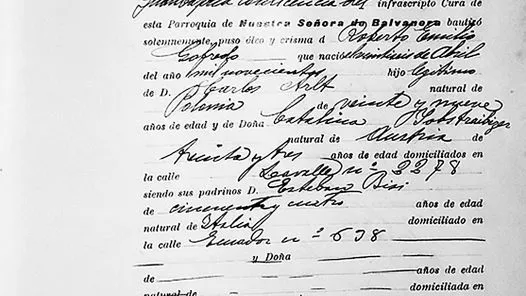 infrascripto Cura de
esta Parroquia de Nuestra Señora de Balvanera bautizó
solemnemente, puso óleo y crisma á Roberto Emilio
Gofredo que nació el veintiseis de Abril
del año mil novecientos hijo legitimo
de D. Carlos Arlt natural de
Polonia de veinte y nueve
años de edad y de Doña Catalina Iobstraibizer
natural de Austria de
treinta y tres años de edad domiciliados en
la calle Lavalle nº 2278
siendo sus padrinos D. Esteban Bisi
de cincuenta y cuatro años de edad
natural de Italia domiciliado en
la calle Ecuador nº 638
y Doña
de años de edad
natural de domiciliada en